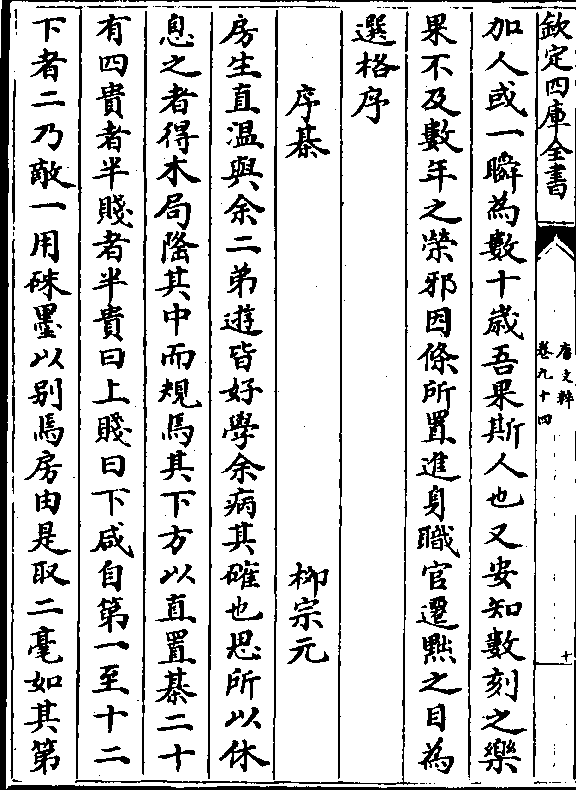 欽定四庫全書
唐文粹
卷九十四
十
加人或一瞬為數十歳吾果斯人也又安知數刻之樂
果不及數年之榮邪因條所置進身職官遷黜之目為
選格序
序棊
柳宗元
房生直温與余二弟遊皆好學余病其確也思所以休
息之者得木局隆其中而規焉其下方以直置棊二十
有四貴者半賤者半貴曰上賤曰下咸自第一至十二
下者二乃敵一用硃墨以别焉房由是取二毫如其第